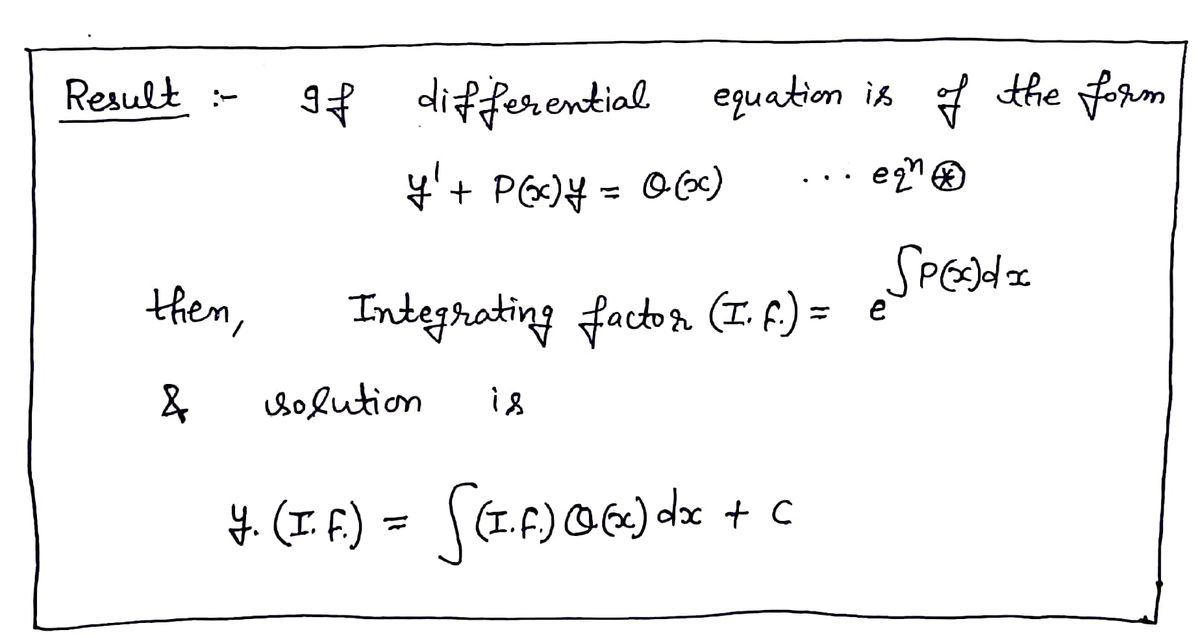 Result :- If differential equation is of the form
y' + P(x)y = Q(x) ... eqⁿ ⊛
then, Integrating factor (I.F.) = e^∫P(x)dx
& solution is
y.(I.F.) = ∫(I.F.) Q(x) dx + c